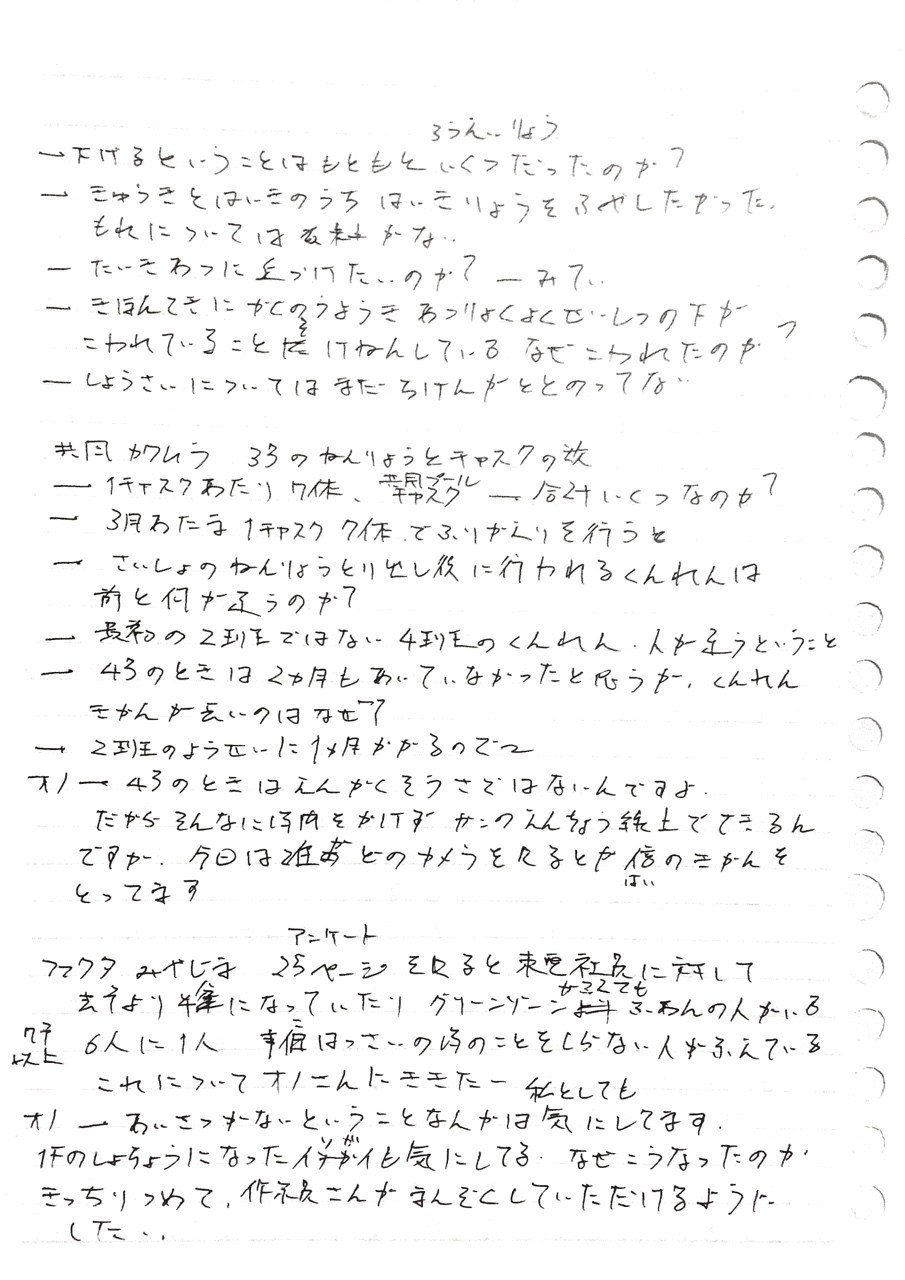 ろうえいりょう
ー下げるということはもともといくつだったのか？
ー きゅうきとはいきのうち はいきりょうをふやしたかった、
もれについては資料がない
ー たいきあつに近づけたいのか？ ーみてい
ー きほんてきに かくのうようき あつりょくよくせいしつの下が
こわれていることを けねんしている なぜこわれたのか？
ー しょうさいについてはまだ ちけんがととのってない
共同 カワムラ 3号のねんりょうとチャスクの
ー 1チャスクあたり7体、共用プール チャスク ー 合計いくつなのか？
ー 3月あたま 1チャスク 7体 でふりかえりを行うと
ー さいしょのねんりょうとり出し後に行われるくんれんは
前と何が違うのか？
ー 最初の2班ではない 4班のくんれん、人が違うということ
ー 4号のときは2か月もあいていなかったと思うが、くんれん
きかんが長いのはなぜ？
ー 2班のようせいに1ヶ月かかるので2
オノ ー 4号のときはえんかくそうさではないんですよ、
だから そんなに時間をかけず かこのえんちょう線上でできるん
ですが、今回は どのカメラを見るとか 倍のきかんを
ばい
とってます
アンケート
ファクタ みやじま 25ページ を見ると 東電社員に対して
去年より になっていたり グリーンゾーン かるくても ふあんの人がいる
7年以上 6人に1人 事故はっさいの時のことをしらない人がふえている
これについてオノさんにききたい
オノ ー あいさつがないということなんかは 私としても 気にしてます、
1Fのしょちょうになった イソガイも気にしてる、なぜこうなったのか
きっちりつめて、作業員さんが まんぞくしていただけるように
したい、